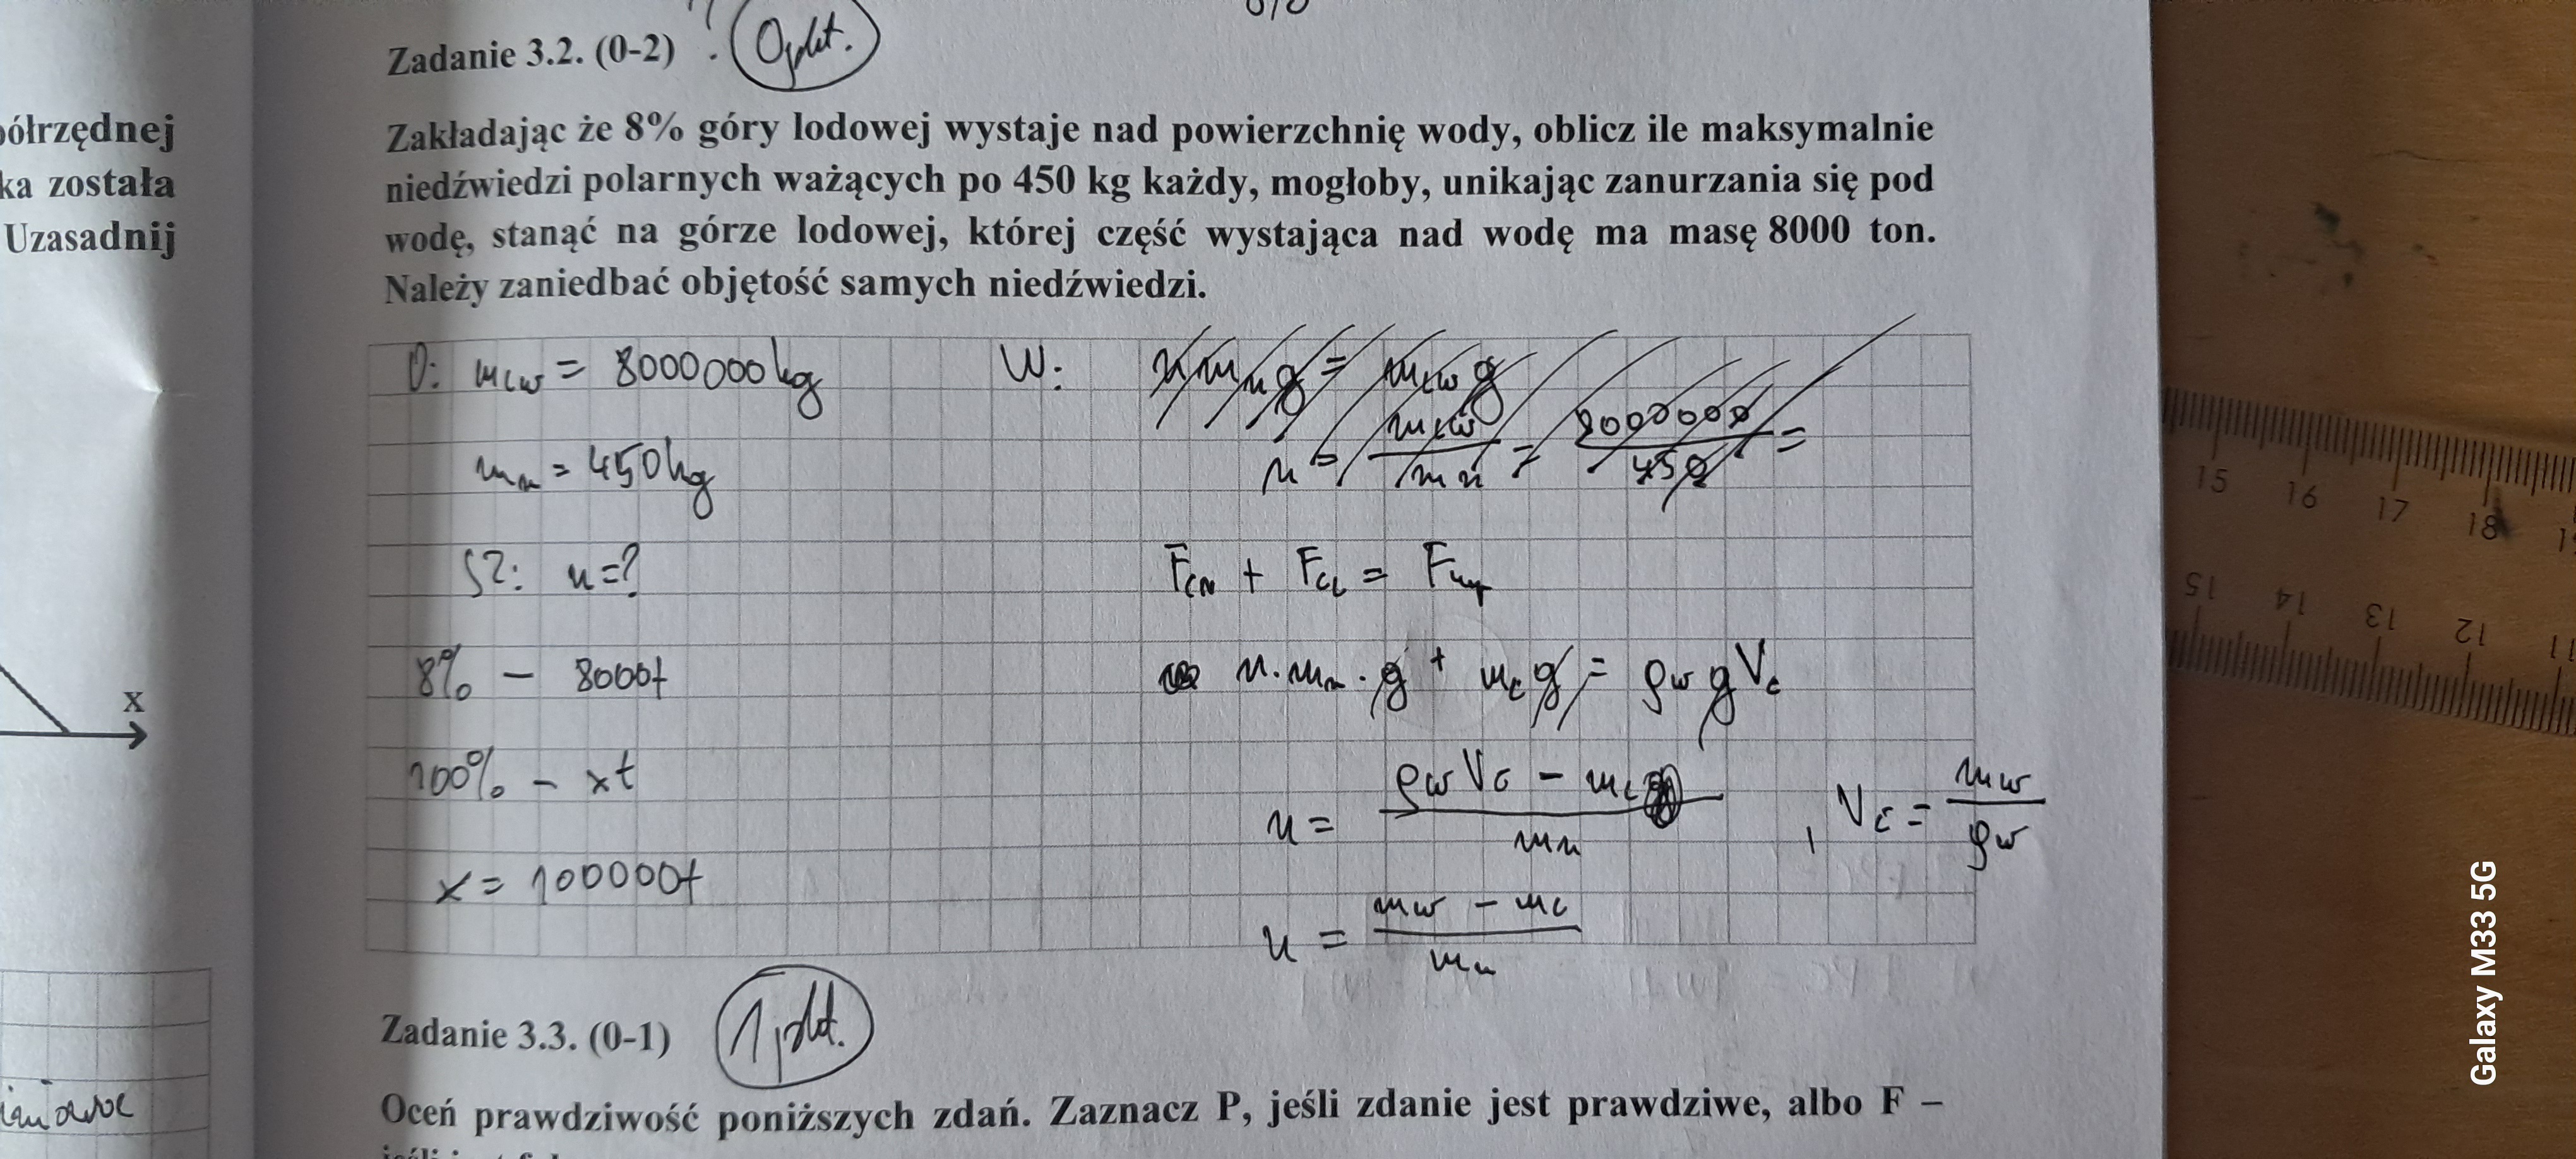 Zadanie 3.2. (0-2)
0 pkt.
Zakładając że 8% góry lodowej wystaje nad powierzchnię wody, oblicz ile maksymalnie
niedźwiedzi polarnych ważących po 450 kg każdy, mogłoby, unikając zanurzania się pod
wodę, stanąć na górze lodowej, której część wystająca nad wodę ma masę 8000 ton.
Należy zaniedbać objętość samych niedźwiedzi.
półrzędnej
ka została
Uzasadnij
x
D: mLW = 8000000kg
mn = 450kg
SZ: n=?
8% - 8000t
100% - xt
x = 100000t
W: n mn g = mLW g
n = mLW / mn = 8000000 / 450 =
FCN + FCL = Fwyp
n · mn · g + mc g = ρw g Vc
n = ρw Vc - mc / mn , Vc = mw / ρw
n = mw - mc / mn
Zadanie 3.3. (0-1)
1 pkt.
Oceń prawdziwość poniższych zdań. Zaznacz P, jeśli zdanie jest prawdziwe, albo F –
15 16 17 18
15 14 13 12 11
Galaxy M33 5G